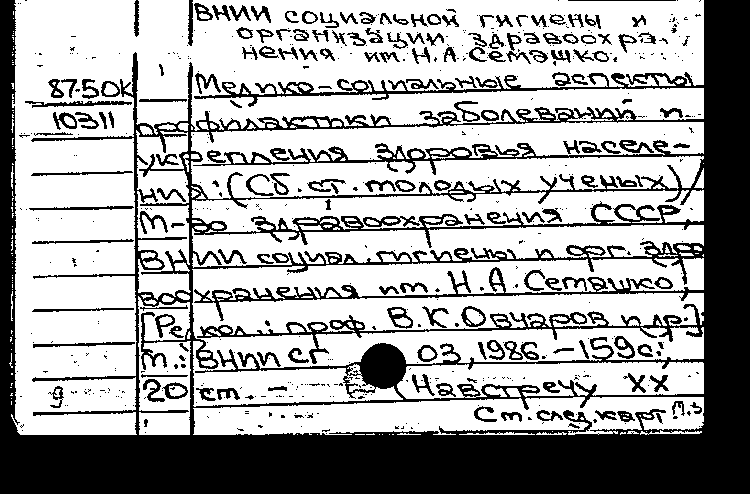 ВНИИ социальной гигиены и
организации здравоохра-
нения им. Н.А.Семашко.
87-50К Медико-социальные аспекты
10311 профилактики заболеваний и
укрепления здоровья населе-
ния: (Сб. ст. молодых ученых) /
М-во здравоохранения СССР,
ВНИИ социал. гигиены и орг. здра
воохранения им. Н.А.Семашко;
[Редкол.: проф. В.К.Овчаров и др.].
М.: ВНИИ СГ 03, 1986. - 159с.;
9 20 см. - (Навстречу XX
См. след. карт